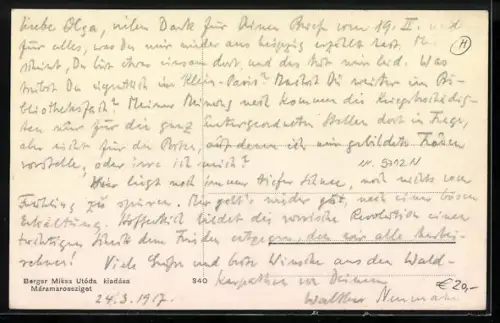 Liebe Olga, vielen Dank für Deinen Brief vom 19. II. und
für alles, was Du mir wieder aus Leipzig erzählt hast. Mir
scheint, Du bist etwas einsam dort, und das tut mir leid. Was
treibst Du eigentlich im Klein-Paris? Machst Du weiter im Bi-
bliotheksfach? Meiner Meinung nach kommen die Kriegsbeschädig-
ten nur für die ganz untergeordneten Stellen dort in Frage,
aber nicht für den Posten, auf denen ich mir gebildete Frauen
vorstelle, oder irre ich mich?
Hier liegt noch immer tiefer Schnee, noch nichts vom
Frühling zu spüren. Mir geht's wieder gut, nach einer bösen
Erkältung. Hoffentlich bildet die russische Revolution einen
Schritt dem Frieden entgegen, den wir alle herbei-
sehnen! Viele Grüße und beste Wünsche aus den Wald-
Karpathen von Deinem
Walther Neumann
24.3.1917.
H
€20,-
Berger Miksa Utóda kiadása
Máramarossziget
S40